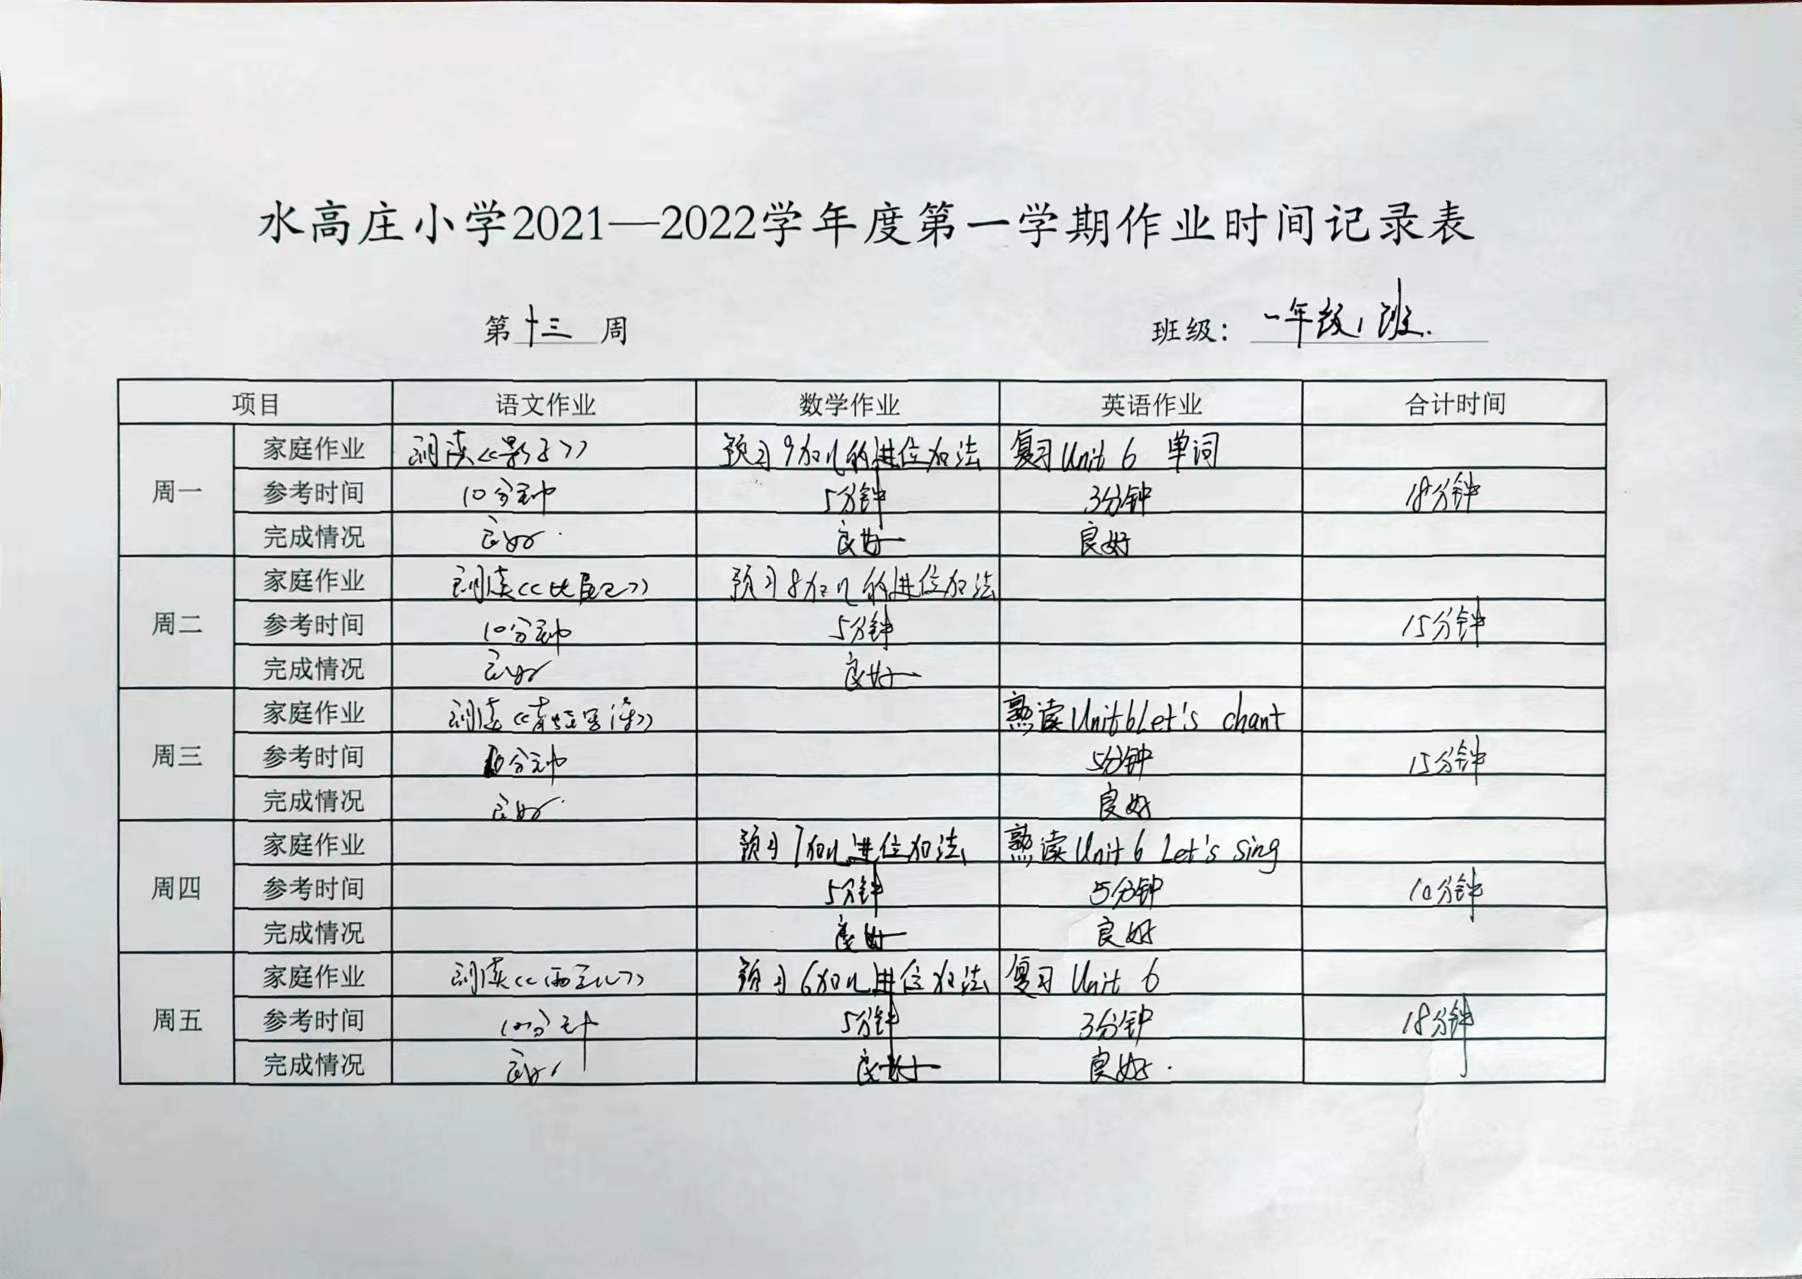 水高庄小学2021—2022学年度第一学期作业时间记录表
第十三周 班级：一年级1班.
项目 语文作业 数学作业 英语作业 合计时间
周一 家庭作业 朗读《影子》 预习9加几的进位加法 复习Unit 6 单词
参考时间 10分钟 5分钟 3分钟 18分钟
完成情况 良好 良好 良好
周二 家庭作业 朗读《比尾巴》 预习8加几的进位加法
参考时间 10分钟 5分钟 15分钟
完成情况 良好 良好
周三 家庭作业 朗读《青蛙写诗》 熟读Unit6Let's chant
参考时间 10分钟 5分钟 15分钟
完成情况 良好 良好
周四 家庭作业 预习7加几进位加法 熟读Unit 6 Let's sing
参考时间 5分钟 5分钟 10分钟
完成情况 良好 良好
周五 家庭作业 朗读《雨点儿》 预习6加几进位加法 复习Unit 6
参考时间 10分钟 5分钟 3分钟 18分钟
完成情况 良好 良好 良好.